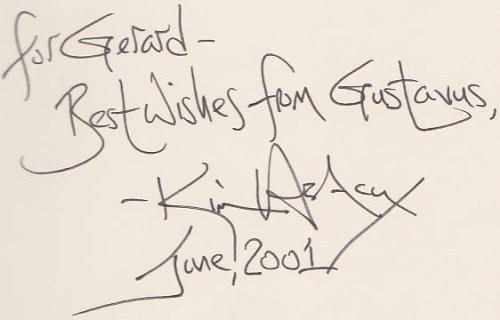 for Gerard -
Best Wishes from Gustavus,
- Kim
June, 2001